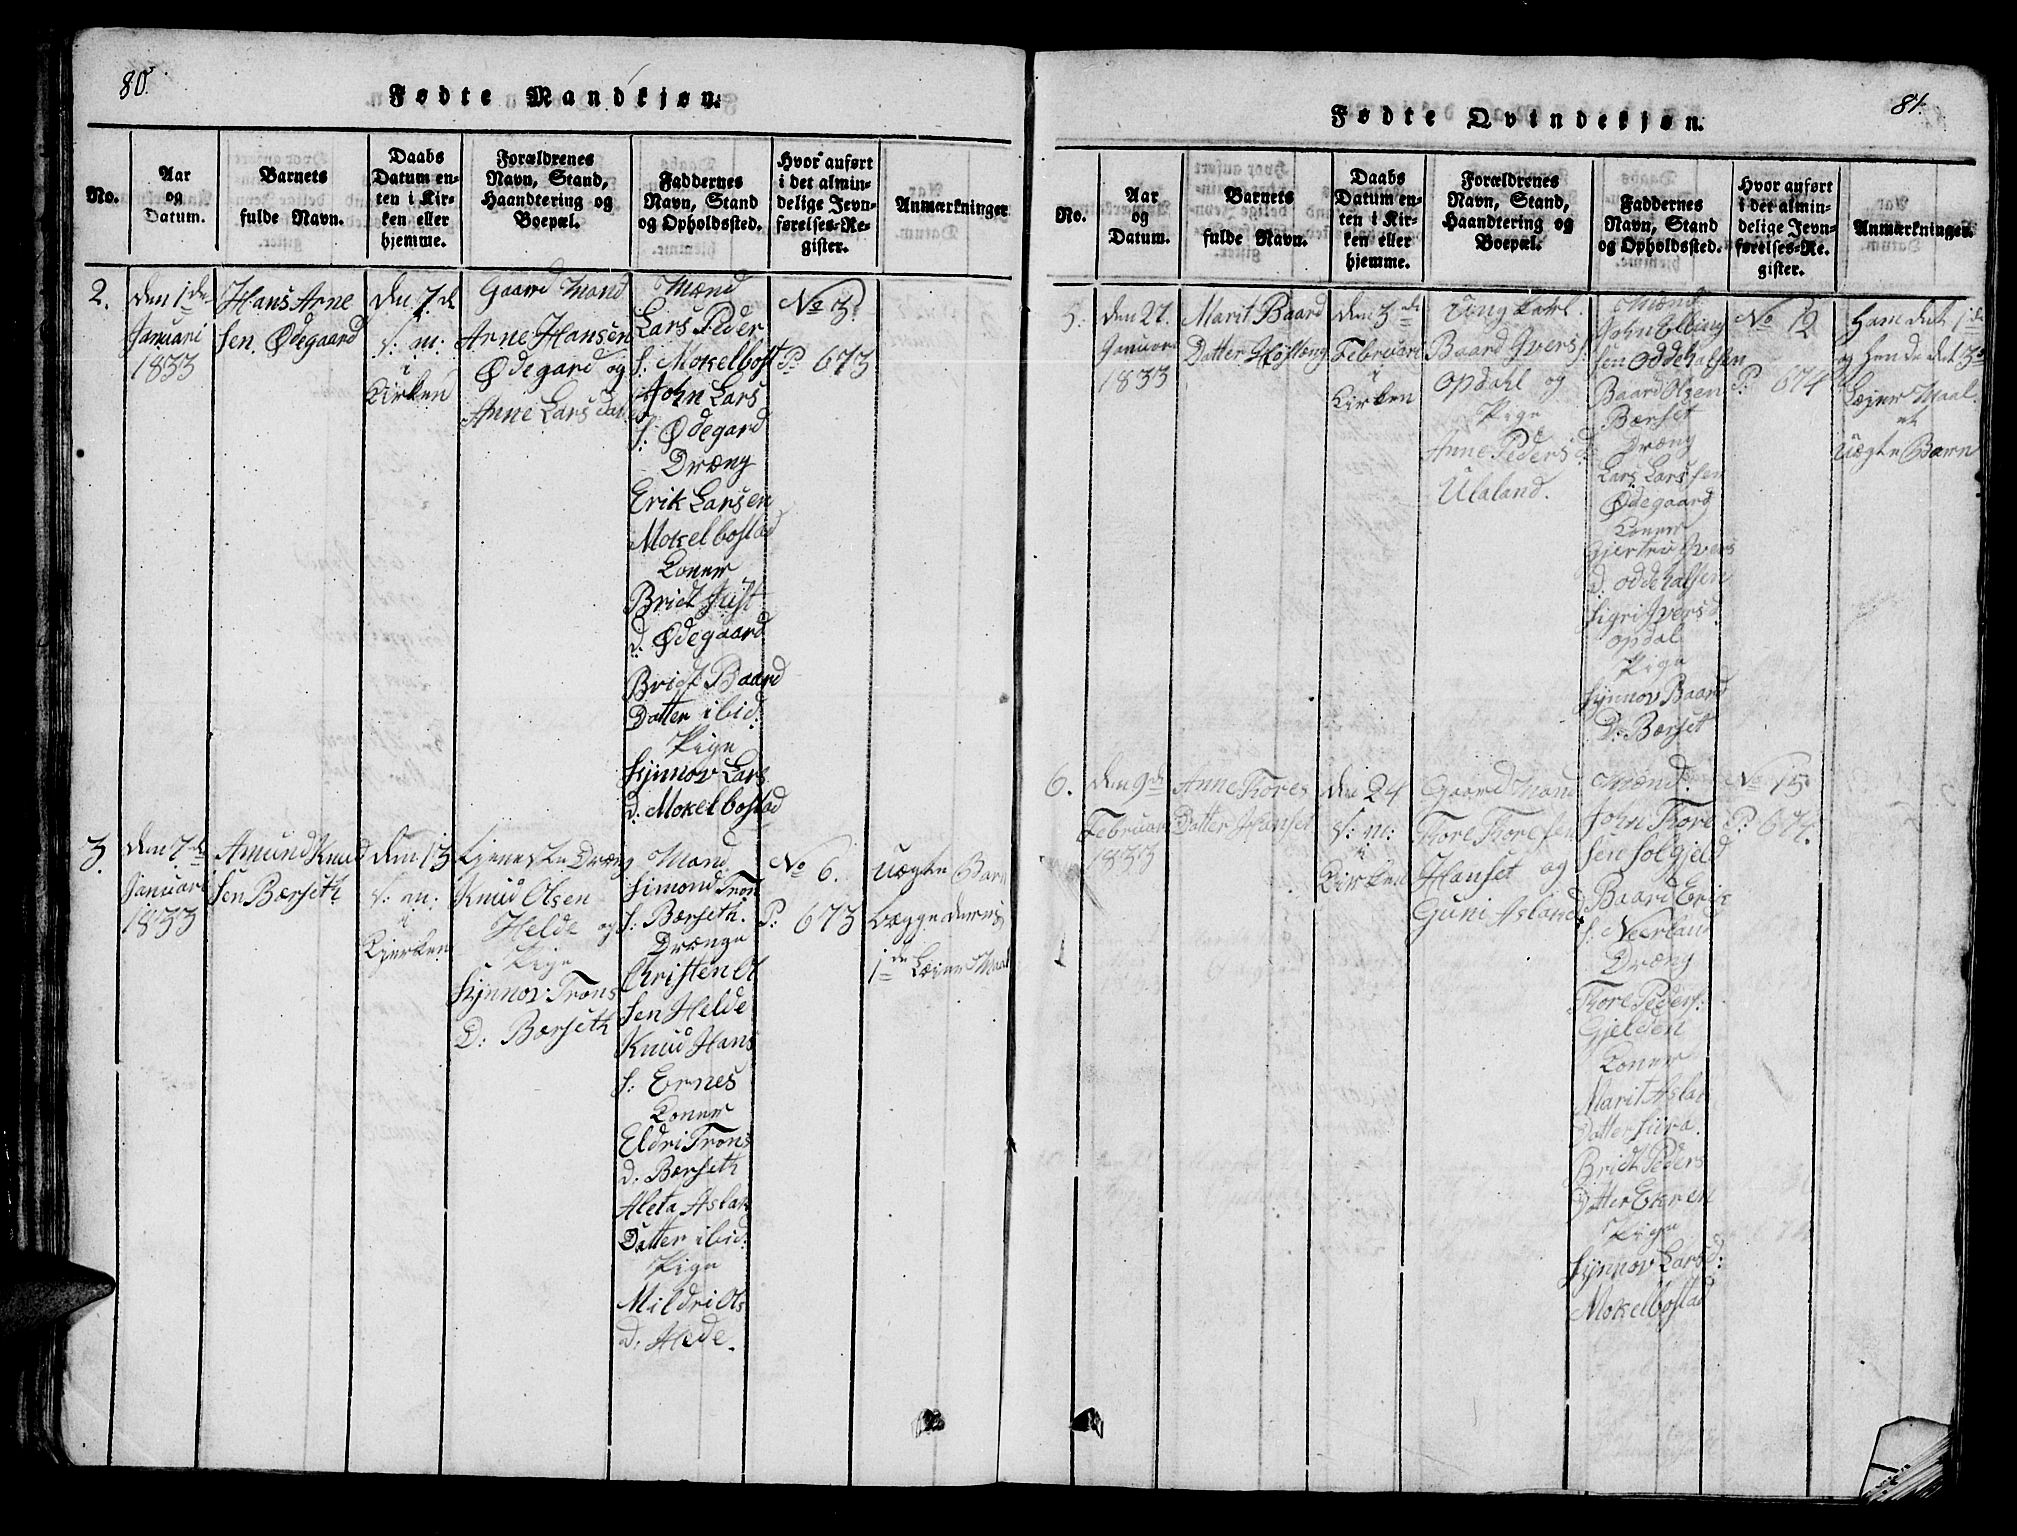 80.
Fødte Mandkjøn.
No.
Aar
og
Datum.
Barnets
fulde Navn.
Daabs
Datum en-
ten i Kir-
ken eller
hjemme.
Forældrenes
Navn, Stand,
Haandtering og
Boepæl.
Faddernes
Navn, Stand
og Opholdssted.
Hvor anført
i det almin-
delige Jevn-
førelses-Re-
gister.
Anmærkninger
2.
den 1de
Januari
1833
Hans Arne
sen Ødegaard
den 7.d
s: m:
i
Kirken
Gaard Mand
Arne Hansen
Ødegard og
Anne Lars dat
Mænd
Lars Peder
s. Mokelbost
John Lars
s: Ødegard
Dræng
Erik Larsen
Mokelbostad
Koner
Bridt Just
d. Ødegaard
Bridt Baard
Datter ibid:
Pige
Synnov Lars
d: Mokelbostad
No 3.
P. 673
3
den 7.de
Januari
1833
Amund Knud
sen Bærseth
den 13
s: m:
i
Kjerken
tjeneste Dræng
Knud Olsen
Helde og
Pige
Synnov: Trons
D: Bærseth
Mand
Simond Tron
s: Bærseth.
Drænge
Christen Ol
sen Helde
Knud Hans
s: Ernes
Koner
Eldri Trons
d. Bærseth
Aleta Aslak
Datter ibid:
Pige
Mildri Ols
d. Helde.
No 6.
P: 673
Uægte Barn
begge deres
1de Leier Maal
84.
Fødte Qvindekjøn.
No.
Aar
og
Datum.
Barnets
fulde Navn.
Daabs
Datum en-
ten i Kir-
ken eller
hjemme.
Forældrenes
Navn, Stand,
Haandtering og
Boepæl.
Faddernes
Navn, Stand
og Opholdssted.
Hvor anført
i det almin-
delige Jevn-
førelses-Re-
gister.
Anmærkninger.
5.
den 27.
Januari
1833
Marit Baard
Datter
den 3de
Februari
i
Kirken
Ung karl.
Baard Ivers
Opdahl og
Pige
Anne Peders d
Ulaland.
Mænd
John Elling
sen Oddehalsen
Baard Olsen
Bærset
Dræng
Lars Larssen
Ødegaard
Koner
Gjertru Ivers
d: Oddehalsen
Sigri Ivers d
Opdal
Pige
Synnov Baard
D: Bærset
No 12
P. 674
Ham det 1de
og hende det 3de
Leier Maal.
et
Uægte Barn
6.
den 9de
Februar
1833
Anne Thores
Datter Hanset
den 24
s: m:
i
Kirken
Gaard Mand
Thore Thoresen
Hanset og
Guni Asland
Mænd.
John Thore
sen Solgjeld
Baard Erik
s: Neerland
Dræng
Thore Peders:
Gjelden
Koner
Marit Aslak
Datter Sira.
Bridt Peders
Datter Ekren
Pige
Synnov Lars d:
Mokelbostad
No 15
P: 674.